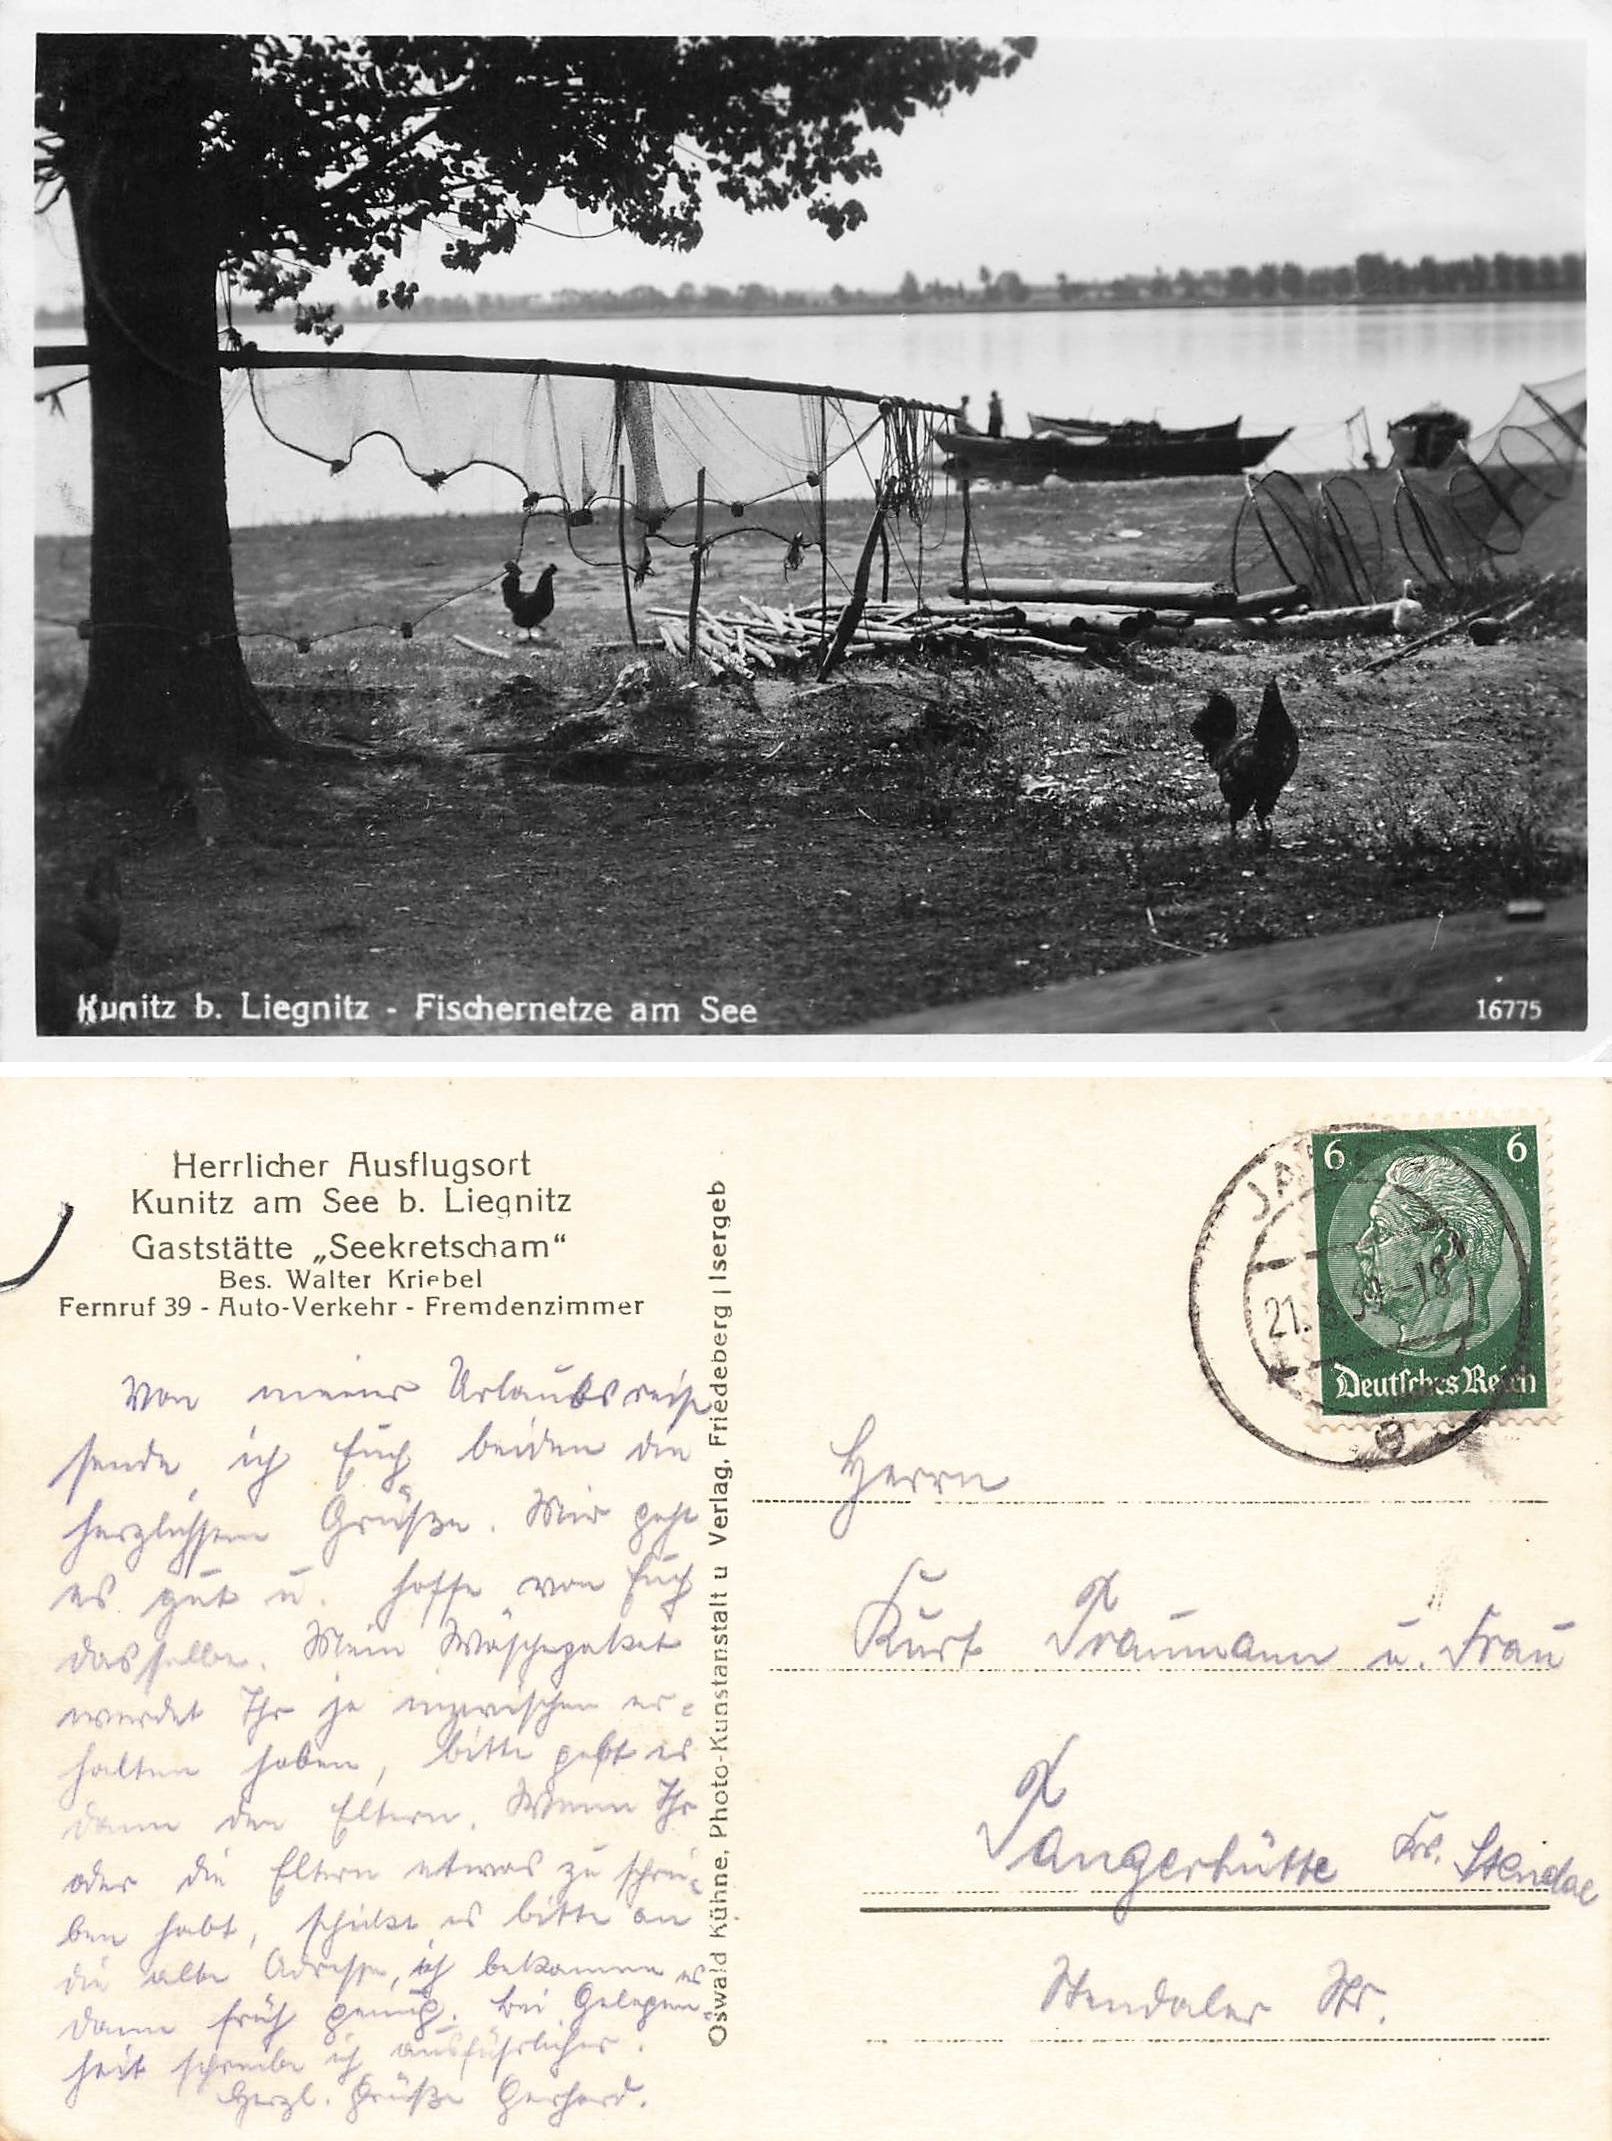 Kunitz b. Liegnitz - Fischernetze am See
16775
Herrlicher Ausflugsort
Kunitz am See b. Liegnitz
Gaststätte „Seekretscham“
Bes. Walter Kriebel
Fernruf 39 - Auto-Verkehr - Fremdenzimmer
Von meiner Urlaubsreise
sende ich Euch beiden die
herzlichsten Grüße. Mir geht
es gut u. hoffe von Euch
dasselbe. Mein Wäschepaket
werdet Ihr ja inzwischen er-
halten haben, bitte gebt es
dann den Eltern. Wenn Ihr
oder die Eltern etwas zu schrei-
ben habt, schickt es bitte an
die alte Adresse, ich bekomme es
dann früh genug. Bei Gelegen-
heit schreibe ich ausführlicher.
Herzl. Grüße Gerhard.
Oswald Kühne, Photo-Kunstanstalt u Verlag, Friedeberg | Isergeb
6 6
Deutsches Reich
21.
-18
Herrn
Kurt Traumann u. Frau
Tangerhütte Krs. Stendal
Stendaler Str.